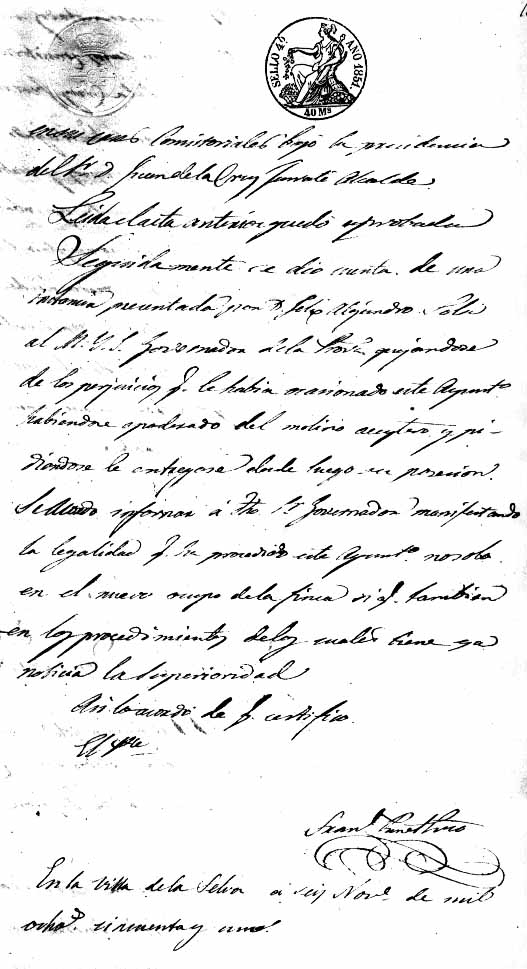 SELLO 4º AÑO 1851.
40 Ms
Consistoriales bajo la presidencia
del Sr. D. Juan de la Cruz Alcalde
Leida el acta anterior quedó aprobada
Seguidamente se dio cuenta de una
instancia presentada por D. Felix Alejandro
al M. Y. S. Governador de la Prova. quejandose
de los perjuicios q. le habia ocasionado este Ayunto.
habiendose apoderado del molino aceytero y pi-
diendose le entregase desde luego su posesion.
Se acordó informar á dho Sr. Governador manifestando
la legalidad q. ha procedido este Ayunto. no solo
en el nuevo ocupo de la finca si q. tambien
en los procedimientos de los cuales tiene ya
noticia la Superioridad
Asi lo acordó de q. certifico.
El
Franco.
En la villa de la Selva á seis Nove. de mil
ochos. cincuenta y uno.